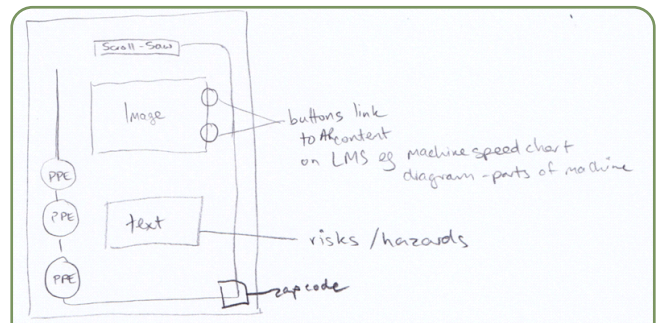 Scroll-Saw
Image
buttons link
to AR content
on LMS eg machine speed chart
diagram - parts of machine
PPE
PPE
text
risks / hazards
PPE
zapcode